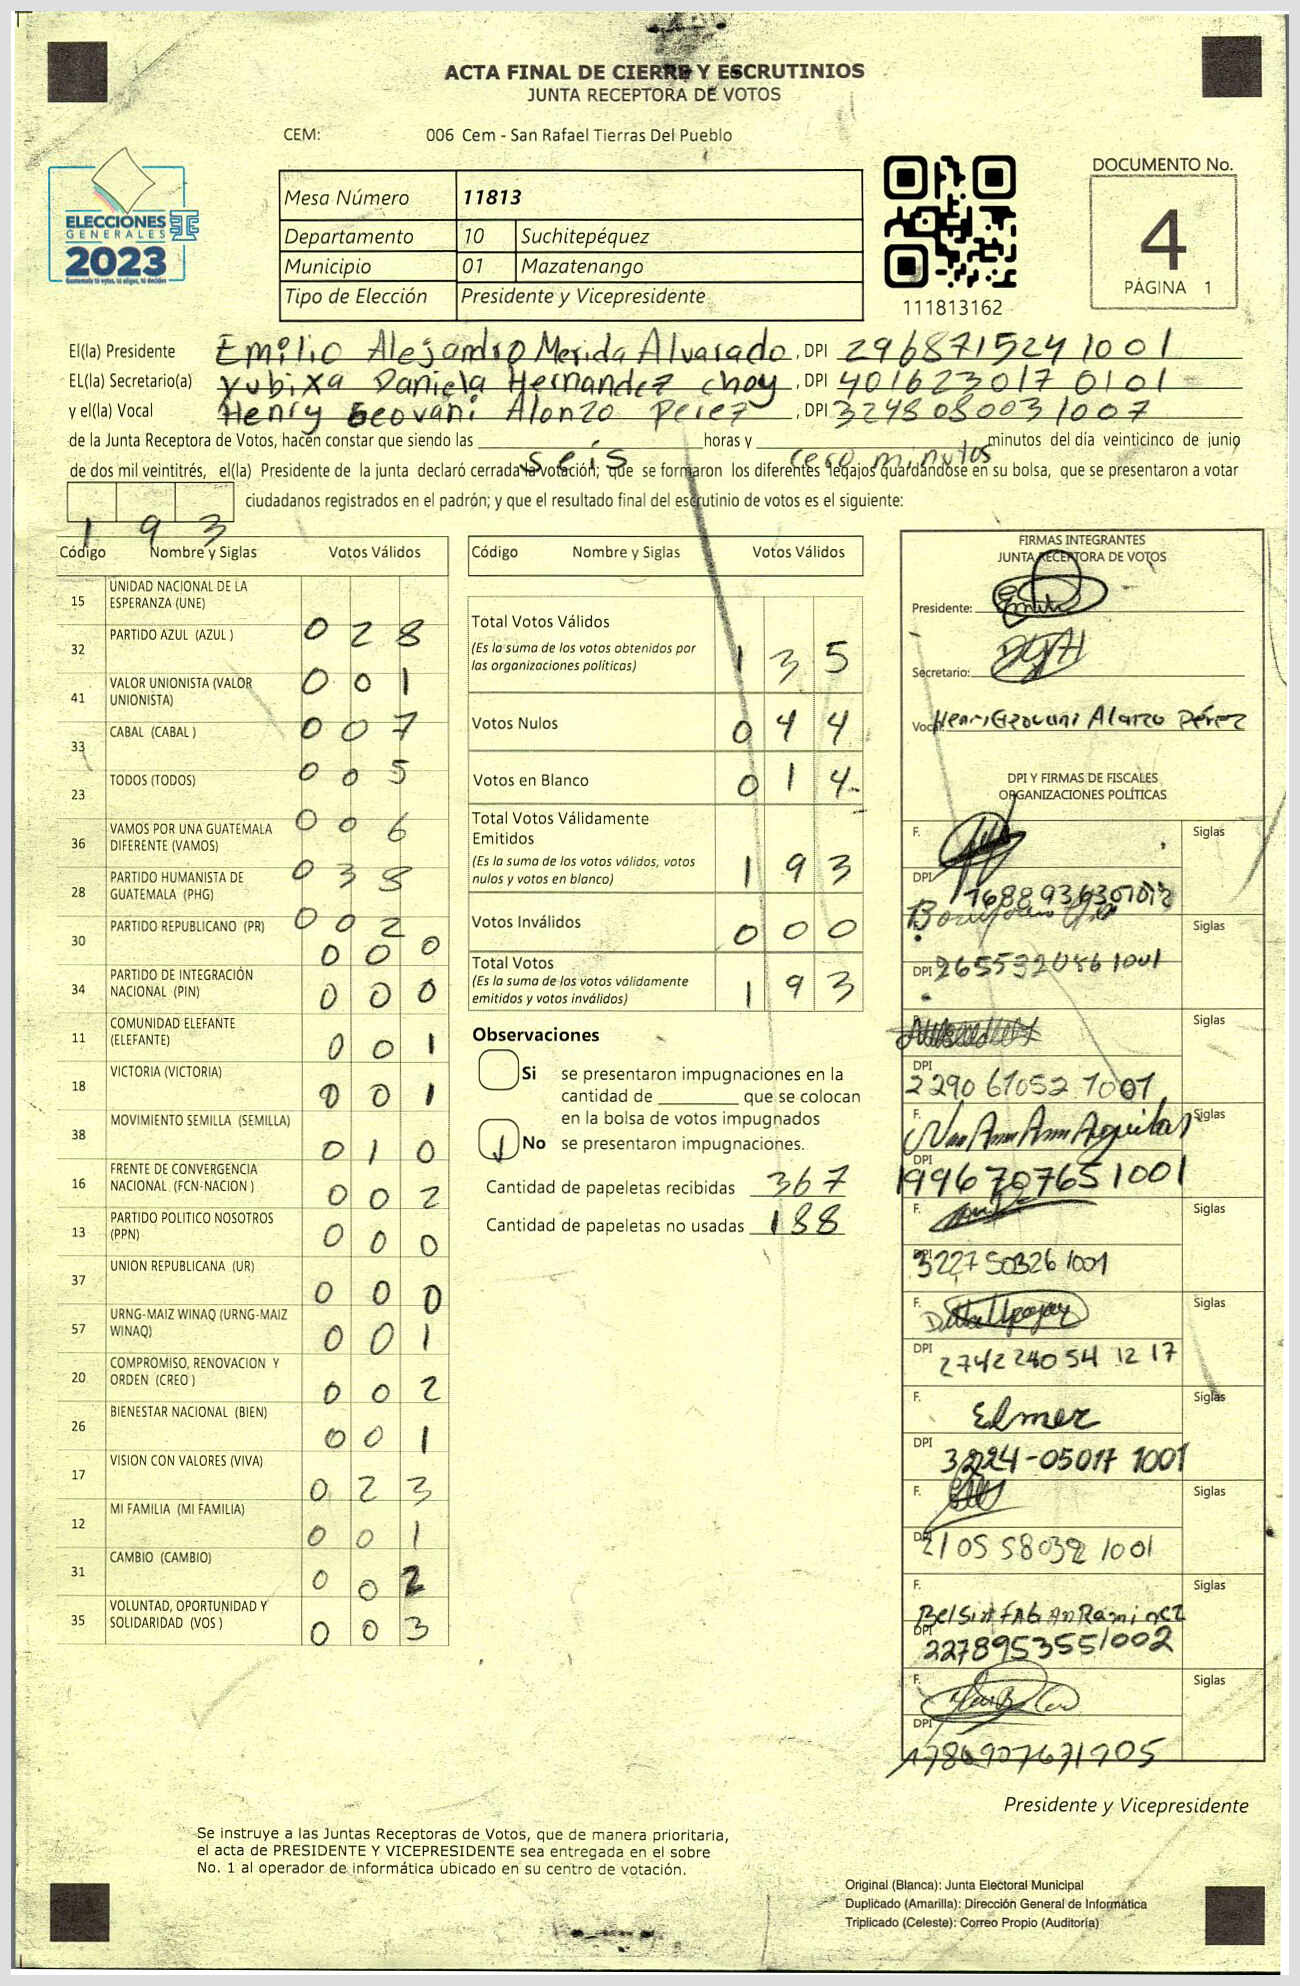 ACTA FINAL DE CIERRE Y ESCRUTINIOS
JUNTA RECEPTORA DE VOTOS
CEM: 006 Cem - San Rafael Tierras Del Pueblo
ELECCIONES
GENERALES
2023
Mesa Número 11813
Departamento 10 Suchitepéquez
Municipio 01 Mazatenango
Tipo de Elección Presidente y Vicepresidente
111813162
DOCUMENTO No.
4
PÁGINA 1
El(la) Presidente Emilio Alejandro Merida Alvarado, DPI 2968715241001
EL(la) Secretario(a) Yubixa Daniela Hernandez choy, DPI 4016230170101
y el(la) Vocal Henry Geovani Alonzo Perez, DPI 3248080031007
de la Junta Receptora de Votos, hacen constar que siendo las seis horas y cero minutos minutos del día veinticinco de junio
de dos mil veintitrés, el(la) Presidente de la junta declaró cerrada la votación; que se formaron los diferentes legajos guardándose en su bolsa, que se presentaron a votar
193 ciudadanos registrados en el padrón; y que el resultado final del escrutinio de votos es el siguiente:
Código Nombre y Siglas Votos Válidos
15 UNIDAD NACIONAL DE LA ESPERANZA (UNE) 028
32 PARTIDO AZUL (AZUL ) 001
41 VALOR UNIONISTA (VALOR UNIONISTA) 007
33 CABAL (CABAL ) 005
23 TODOS (TODOS) 006
36 VAMOS POR UNA GUATEMALA DIFERENTE (VAMOS) 038
28 PARTIDO HUMANISTA DE GUATEMALA (PHG) 002
30 PARTIDO REPUBLICANO (PR) 000
34 PARTIDO DE INTEGRACIÓN NACIONAL (PIN) 000
11 COMUNIDAD ELEFANTE (ELEFANTE) 001
18 VICTORIA (VICTORIA) 001
38 MOVIMIENTO SEMILLA (SEMILLA) 010
16 FRENTE DE CONVERGENCIA NACIONAL (FCN-NACION ) 002
13 PARTIDO POLITICO NOSOTROS (PPN) 000
37 UNION REPUBLICANA (UR) 000
57 URNG-MAIZ WINAQ (URNG-MAIZ WINAQ) 001
20 COMPROMISO, RENOVACION Y ORDEN (CREO ) 002
26 BIENESTAR NACIONAL (BIEN) 001
17 VISION CON VALORES (VIVA) 023
12 MI FAMILIA (MI FAMILIA) 001
31 CAMBIO (CAMBIO) 002
35 VOLUNTAD, OPORTUNIDAD Y SOLIDARIDAD (VOS ) 003
Código Nombre y Siglas Votos Válidos
Total Votos Válidos 135
(Es la suma de los votos obtenidos por
las organizaciones políticas)
Votos Nulos 044
Votos en Blanco 014
Total Votos Válidamente
Emitidos 193
(Es la suma de los votos válidos, votos
nulos y votos en blanco)
Votos Inválidos 000
Total Votos 193
(Es la suma de los votos válidamente
emitidos y votos inválidos)
Observaciones
Si se presentaron impugnaciones en la
cantidad de ________ que se colocan
en la bolsa de votos impugnados
No se presentaron impugnaciones.
Cantidad de papeletas recibidas 367
Cantidad de papeletas no usadas 188
FIRMAS INTEGRANTES
JUNTA RECEPTORA DE VOTOS
Presidente:
Secretario:
Vocal: Henri Geovani Alonzo Pérez
DPI Y FIRMAS DE FISCALES
ORGANIZACIONES POLÍTICAS
F. Siglas
DPI
Siglas
DPI
Siglas
DPI 2290 61052 1001
F. Siglas
DPI 1996707651001
F. Siglas
DPI 3227 50326 1001
F. Siglas
DPI 2742 240 54 12 17
F. Elmer Siglas
DPI 3224-05017 1001
F. Siglas
DPI 2105 58032 1001
F. Siglas
DPI 2278953551002
F. Siglas
DPI
Presidente y Vicepresidente
Se instruye a las Juntas Receptoras de Votos, que de manera prioritaria,
el acta de PRESIDENTE Y VICEPRESIDENTE sea entregada en el sobre
No. 1 al operador de informática ubicado en su centro de votación.
Original (Blanca): Junta Electoral Municipal
Duplicado (Amarilla): Dirección General de Informática
Triplicado (Celeste): Correo Propio (Auditoría)